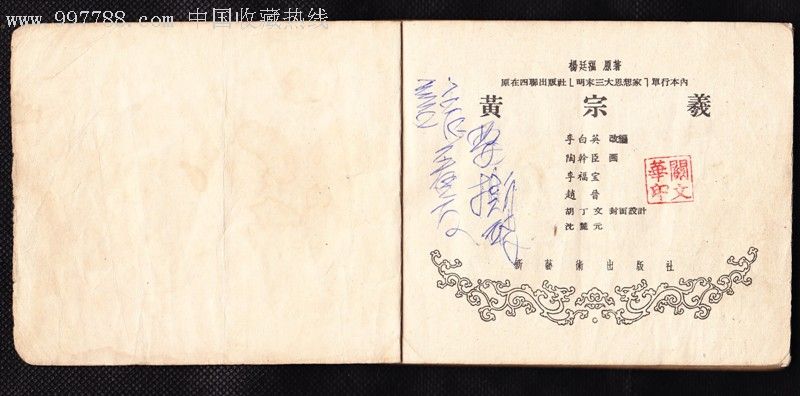 www.997788.com 中国收藏热线
楊廷福 原著
原在四聯出版社⌊明末三大思想家⌉單行本內
黃宗羲
李白英 改編
陶幹臣 画
李福宝
趙晋
胡丁文 封面設計
沈麓元
新藝術出版社
關文
華印